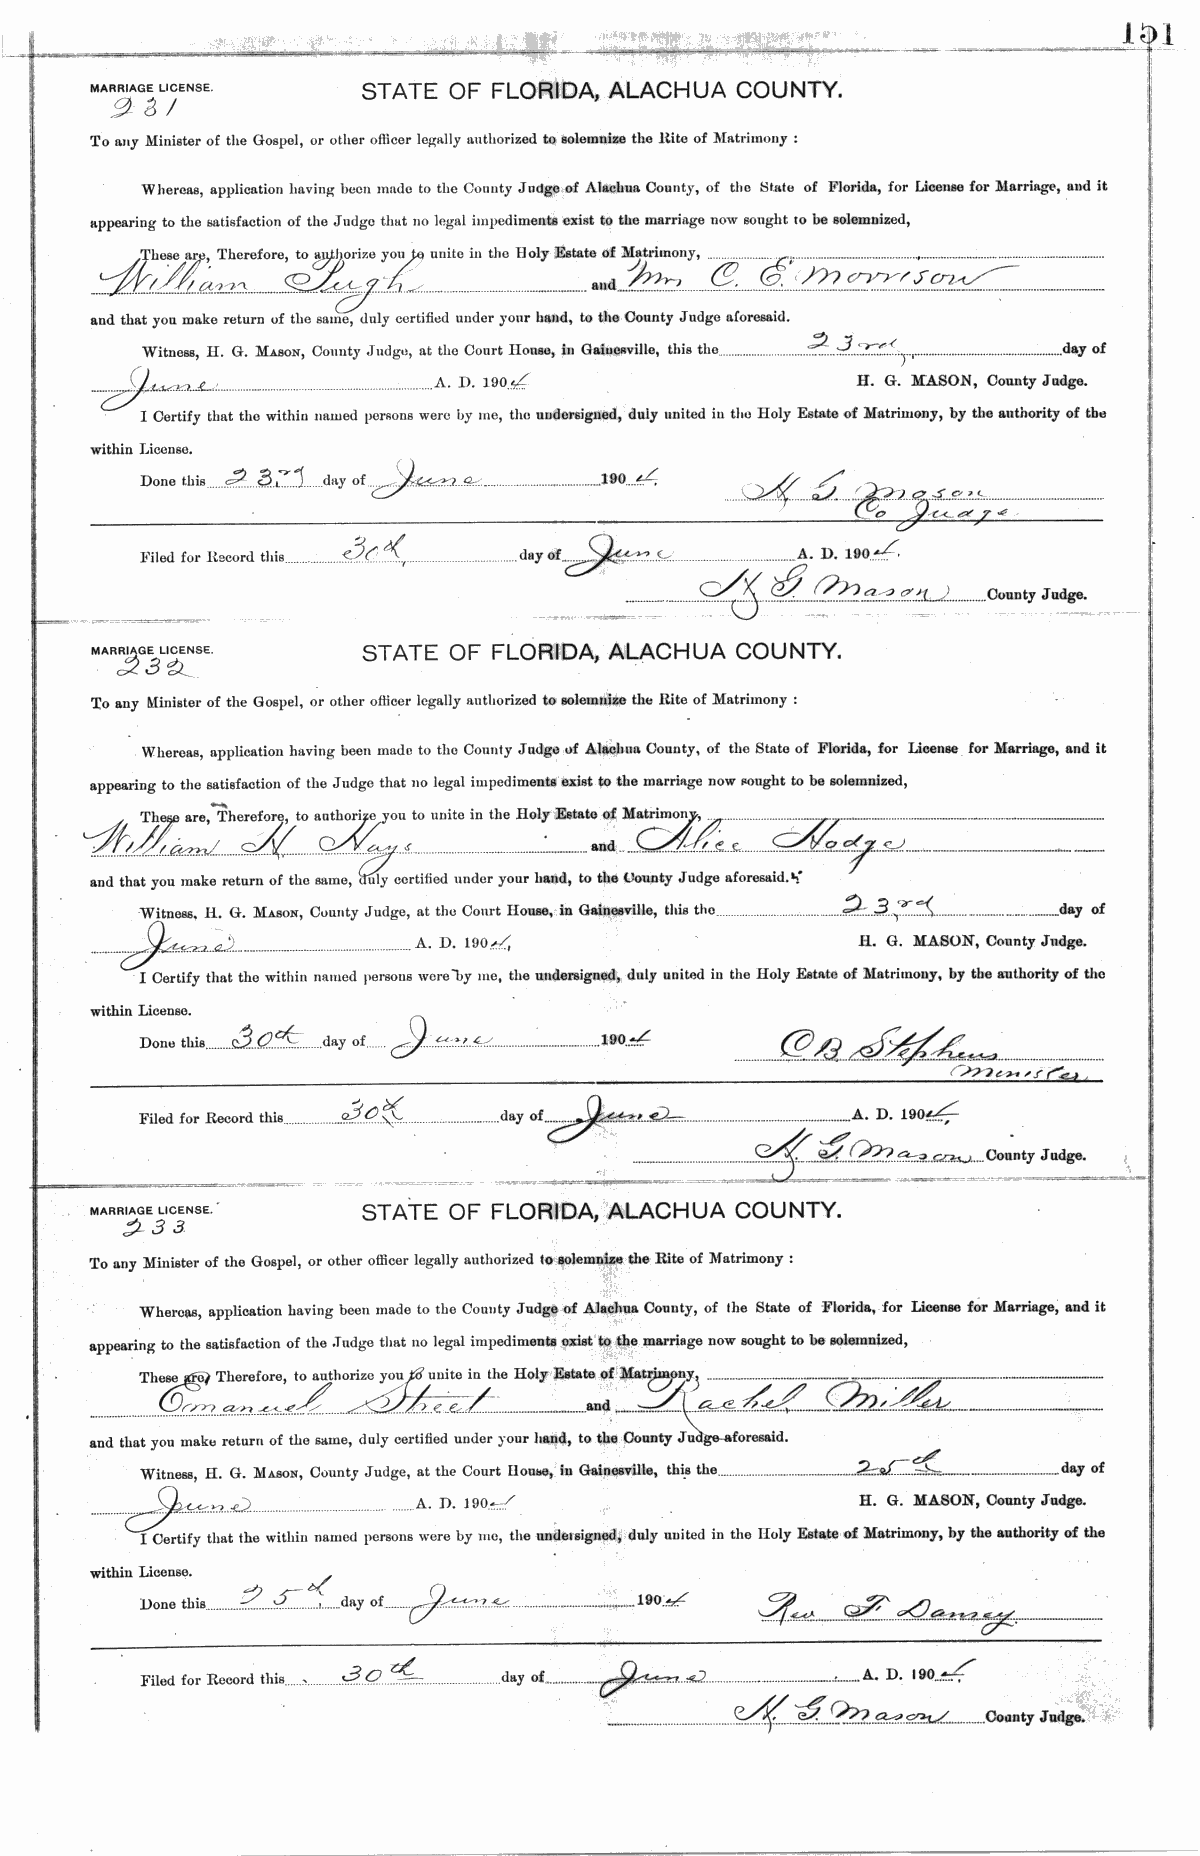 151
MARRIAGE LICENSE. STATE OF FLORIDA, ALACHUA COUNTY.
231
To any Minister of the Gospel, or other officer legally authorized to solemnize the Rite of Matrimony :
Whereas, application having been made to the County Judge of Alachua County, of the State of Florida, for License for Marriage, and it
appearing to the satisfaction of the Judge that no legal impediments exist to the marriage now sought to be solemnized,
These are, Therefore, to authorize you to unite in the Holy Estate of Matrimony,
William Pugh and Mrs C. E. Morrison
and that you make return of the same, duly certified under your hand, to the County Judge aforesaid.
Witness, H. G. MASON, County Judge, at the Court House, in Gainesville, this the 23rd, day of
June A. D. 1904 H. G. MASON, County Judge.
I Certify that the within named persons were by me, the undersigned, duly united in the Holy Estate of Matrimony, by the authority of the
within License.
Done this 23rd day of June 1904. H G. Mason
Co Judge
Filed for Record this 30th, day of June A. D. 1904.
H G. Mason County Judge.
MARRIAGE LICENSE. STATE OF FLORIDA, ALACHUA COUNTY.
232
To any Minister of the Gospel, or other officer legally authorized to solemnize the Rite of Matrimony :
Whereas, application having been made to the County Judge of Alachua County, of the State of Florida, for License for Marriage, and it
appearing to the satisfaction of the Judge that no legal impediments exist to the marriage now sought to be solemnized,
These are, Therefore, to authorize you to unite in the Holy Estate of Matrimony,
William H. Hays and Alice Hodge
and that you make return of the same, duly certified under your hand, to the County Judge aforesaid.
Witness, H. G. MASON, County Judge, at the Court House, in Gainesville, this the 23rd day of
June A. D. 1904, H. G. MASON, County Judge.
I Certify that the within named persons were by me, the undersigned, duly united in the Holy Estate of Matrimony, by the authority of the
within License.
Done this 30th day of June 1904 C. B. Stephens
Minister
Filed for Record this 30th day of June A. D. 1904,
H. G. Mason County Judge.
MARRIAGE LICENSE. STATE OF FLORIDA, ALACHUA COUNTY.
233
To any Minister of the Gospel, or other officer legally authorized to solemnize the Rite of Matrimony :
Whereas, application having been made to the County Judge of Alachua County, of the State of Florida, for License for Marriage, and it
appearing to the satisfaction of the Judge that no legal impediments exist to the marriage now sought to be solemnized,
These are, Therefore, to authorize you to unite in the Holy Estate of Matrimony,
Emanuel Street and Rachel Miller
and that you make return of the same, duly certified under your hand, to the County Judge aforesaid.
Witness, H. G. MASON, County Judge, at the Court House, in Gainesville, this the 25th day of
June A. D. 1904 H. G. MASON, County Judge.
I Certify that the within named persons were by me, the undersigned, duly united in the Holy Estate of Matrimony, by the authority of the
within License.
Done this 25th, day of June 1904 Rev F. Dansey.
Filed for Record this 30th day of June A. D. 1904,
H. G. Mason County Judge.